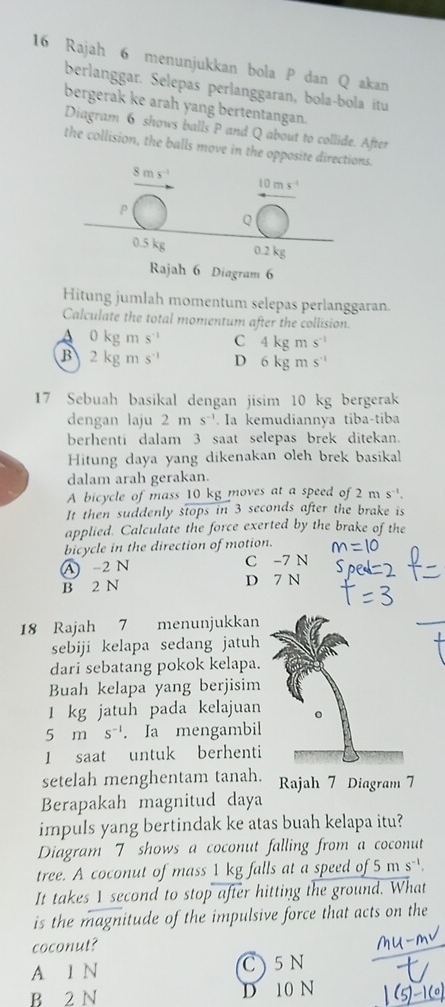 16 Rajah 6 menunjukkan bola P dan Q akan
berlanggar. Selepas perlanggaran, bola-bola itu
bergerak ke arah yang bertentangan.
Diagram 6 shows balls P and Q about to collide. After
the collision, the balls move in the opposite directions.
8 m s⁻¹
10 m s⁻¹
P
Q
0.5 kg
0.2 kg
Rajah 6 Diagram 6
Hitung jumlah momentum selepas perlanggaran.
Calculate the total momentum after the collision.
A 0 kg m s⁻¹ C 4 kg m s⁻¹
B 2 kg m s⁻¹ D 6 kg m s⁻¹
17 Sebuah basikal dengan jisim 10 kg bergerak
dengan laju 2 m s⁻¹. Ia kemudiannya tiba-tiba
berhenti dalam 3 saat selepas brek ditekan.
Hitung daya yang dikenakan oleh brek basikal
dalam arah gerakan.
A bicycle of mass 10 kg moves at a speed of 2 m s⁻¹.
It then suddenly stops in 3 seconds after the brake is
applied. Calculate the force exerted by the brake of the
bicycle in the direction of motion.
A -2 N C -7 N
B 2 N D 7 N
m=10
Sped=2
t=3
f=
t
18 Rajah 7 menunjukkan
sebiji kelapa sedang jatuh
dari sebatang pokok kelapa.
Buah kelapa yang berjisim
1 kg jatuh pada kelajuan
5 m s⁻¹. Ia mengambil
1 saat untuk berhenti
setelah menghentam tanah.
Rajah 7 Diagram 7
Berapakah magnitud daya
impuls yang bertindak ke atas buah kelapa itu?
Diagram 7 shows a coconut falling from a coconut
tree. A coconut of mass 1 kg falls at a speed of 5 m s⁻¹.
It takes 1 second to stop after hitting the ground. What
is the magnitude of the impulsive force that acts on the
coconut?
A 1 N C 5 N
B 2 N D 10 N
mu-mv
t
1(5)-1(0)